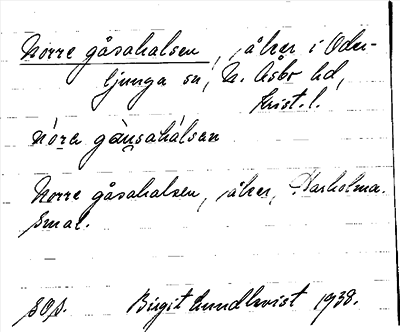 Norre gåsahalsen, åker i Oder-
ljunga sn, N. Åsbo hd,
Krist. l.
nórə gàṉsahálsən
Norre gåsahalsen, åker, Harholma.
Smål.
Birgit Lundkvist 1938.